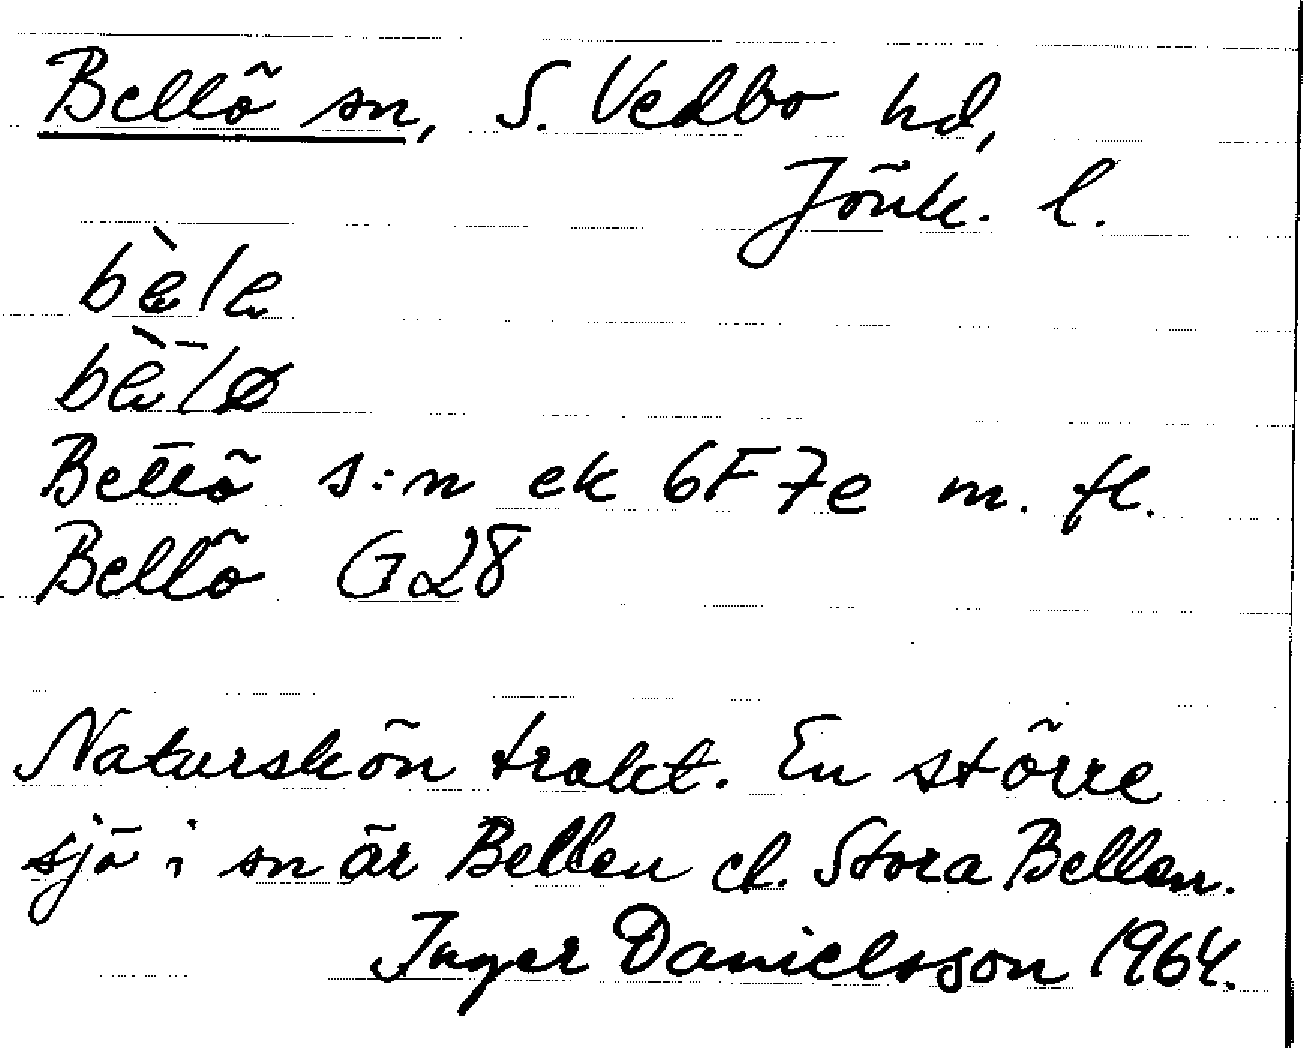 Bellö sn, S. Vedbo hd,
Jönk. l.
bèle
bèlø
Bellö s:n ek 6F7e m. fl.
Bellö G28
Naturskön trakt. En större
sjö i sn är Bellen el. Stora Bellen.
Inger Danielsson 1964.